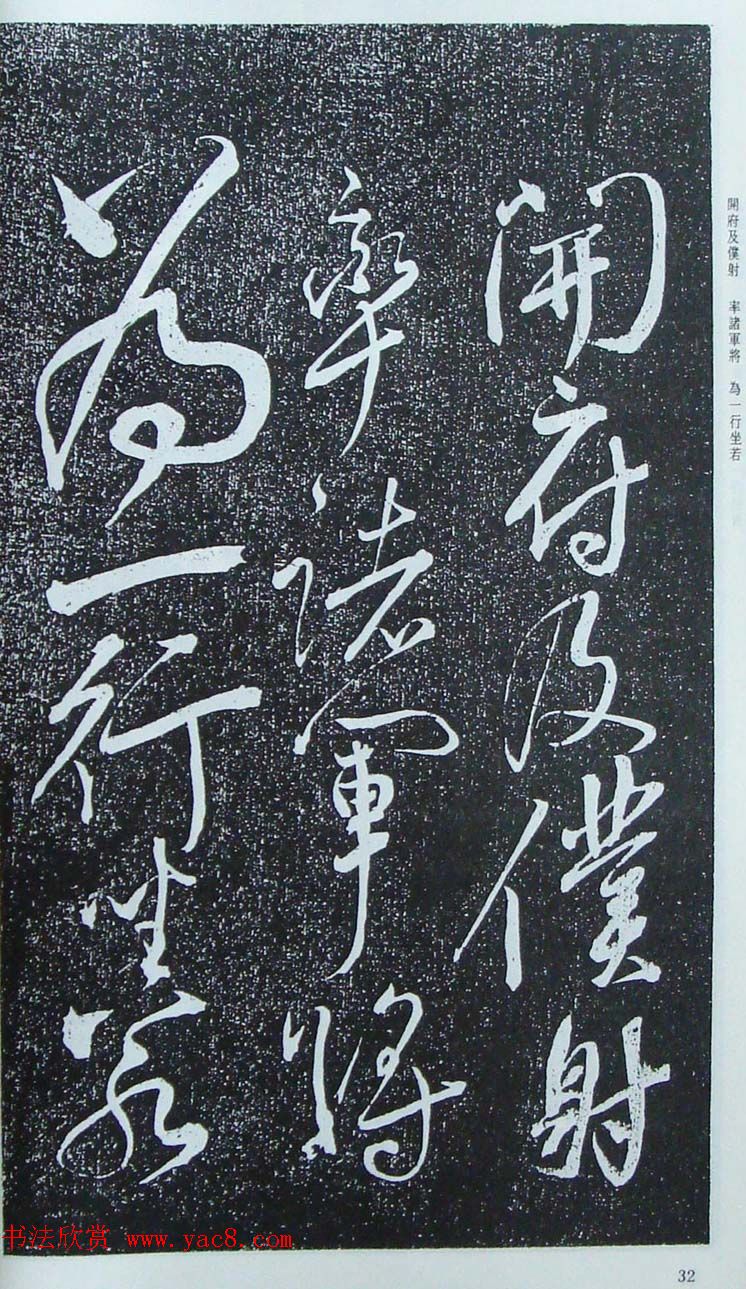 開府及僕射　率諸軍將　為一行坐若
開府及僕射
率諸軍將
為一行坐若
书法欣赏 www.yac8.com
32